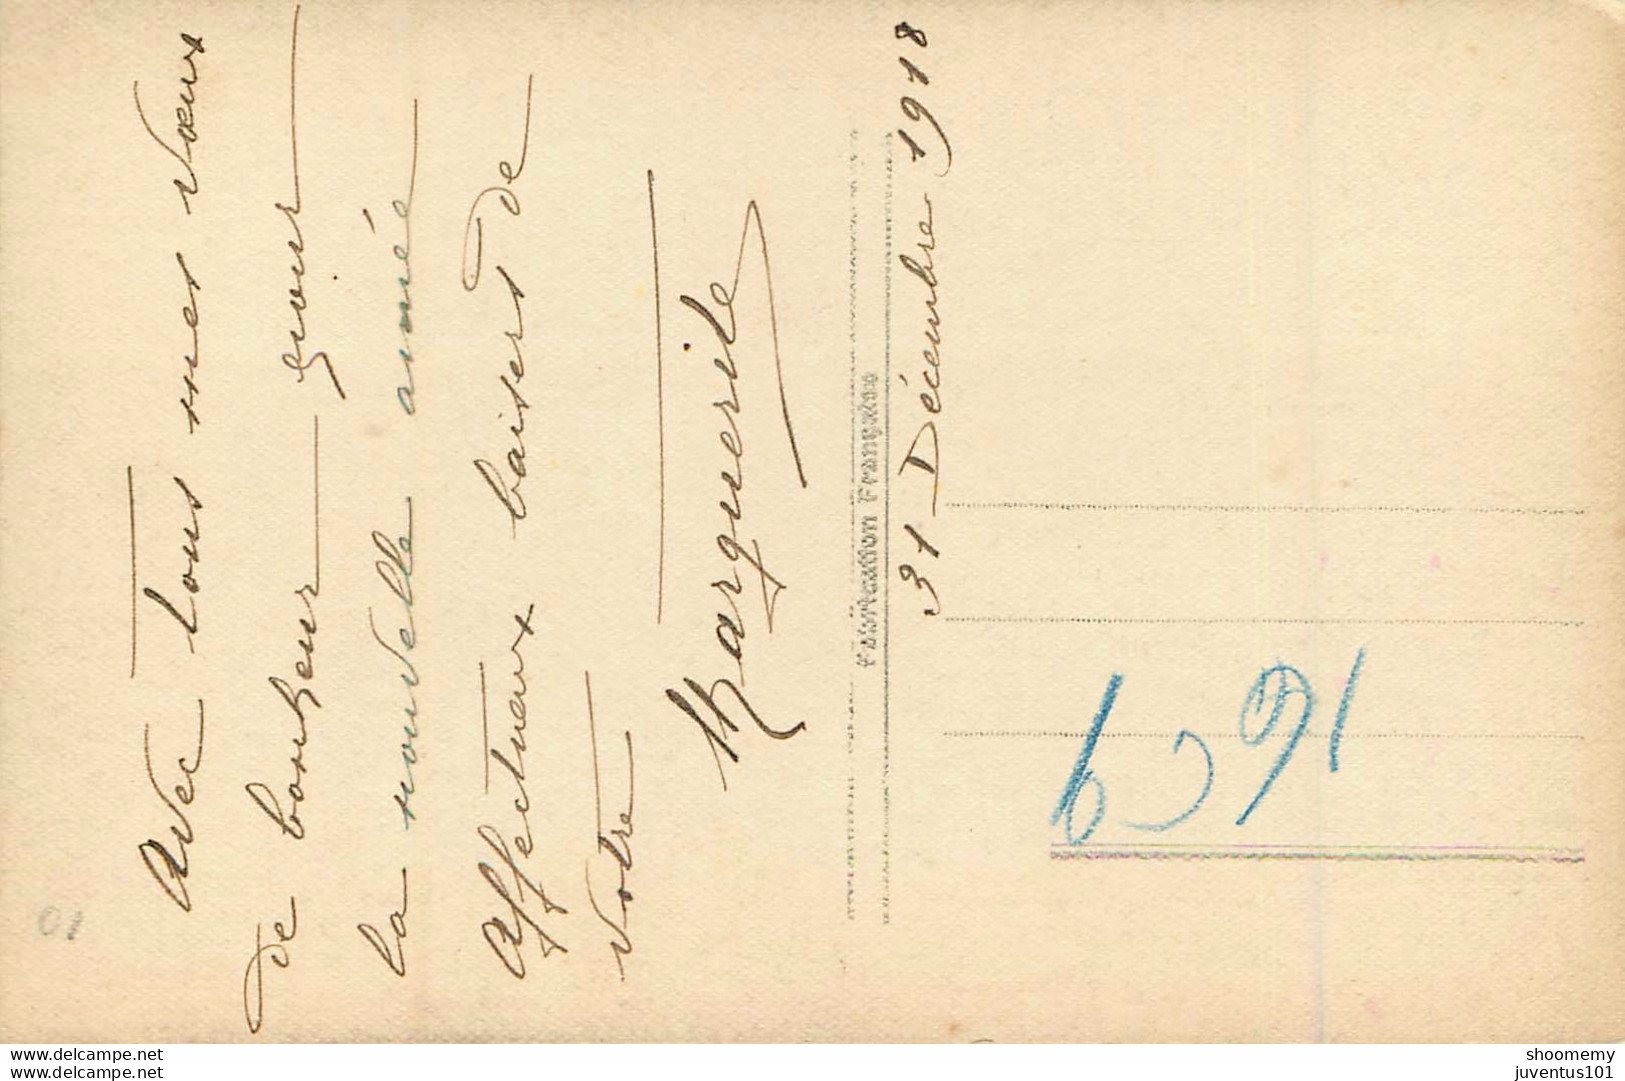 Avec tous mes vœux
de bonheur pour
la nouvelle année
Affectueux baisers de
votre
Marguerite
Fabrication Française
31 Décembre 1918
6091
01
www.delcampe.net
https://www.delcampe.net
shoomemy
juventus101